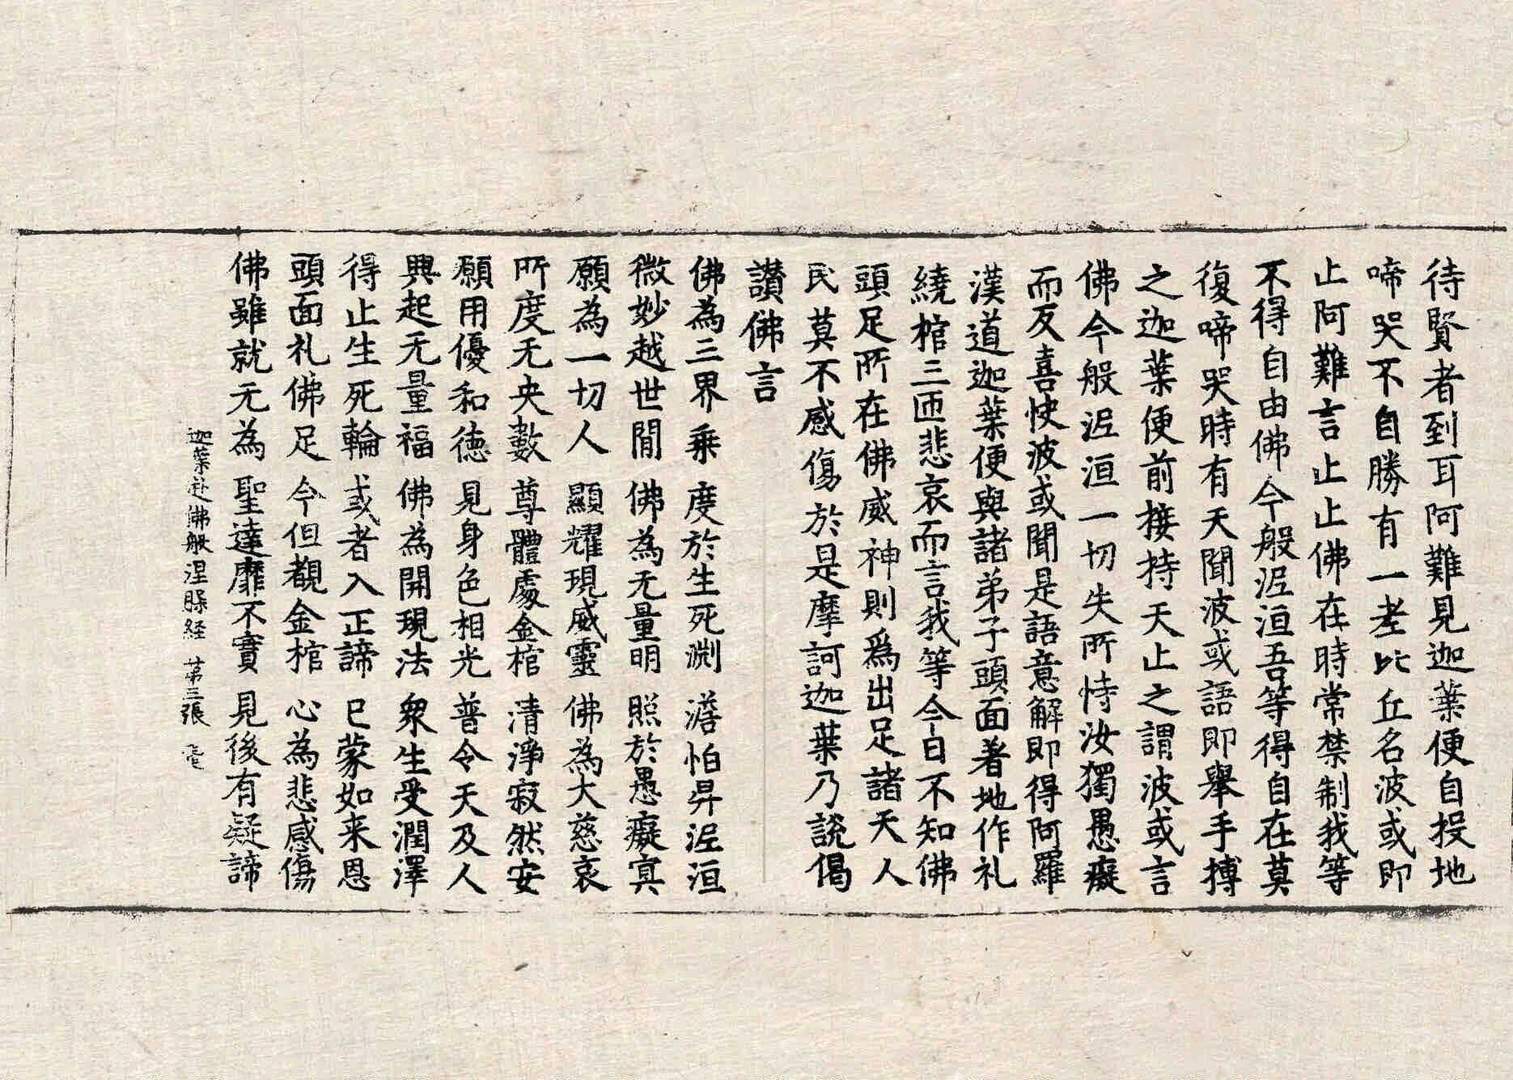 待賢者到耳阿難見迦葉便自投地
啼哭不自勝有一老比丘名波或即
止阿難言止止佛在時常禁制我等
不得自由佛今般泥洹吾等得自在莫
復啼哭時有天聞波或語即舉手搏
之迦葉便前接持天止之謂波或言
佛今般泥洹一切失所恃汝獨愚癡
而反喜快波或聞是語意解即得阿羅
漢道迦葉便與諸弟子頭面著地作礼
繞棺三匝悲哀而言我等今日不知佛
頭足所在佛威神則為出足諸天人
民莫不感傷於是摩訶迦葉乃說偈
讃佛言
佛為三界乘 度於生死渕 澹怕昇泥洹
微妙越世間 佛為无量明 照於愚癡冥
願為一切人 顯耀現威靈 佛為大慈哀
所度无央數 尊體處金棺 清淨寂然安
願用優和徳 見身色相光 普令天及人
興起无量福 佛為開現法 衆生受潤澤
得止生死輪 或者入正諦 已蒙如来恩
頭面礼佛足 今但覩金棺 心為悲感傷
佛雖就无為 聖達靡不實 見後有疑諦
迦葉赴佛般涅槃経 第三張